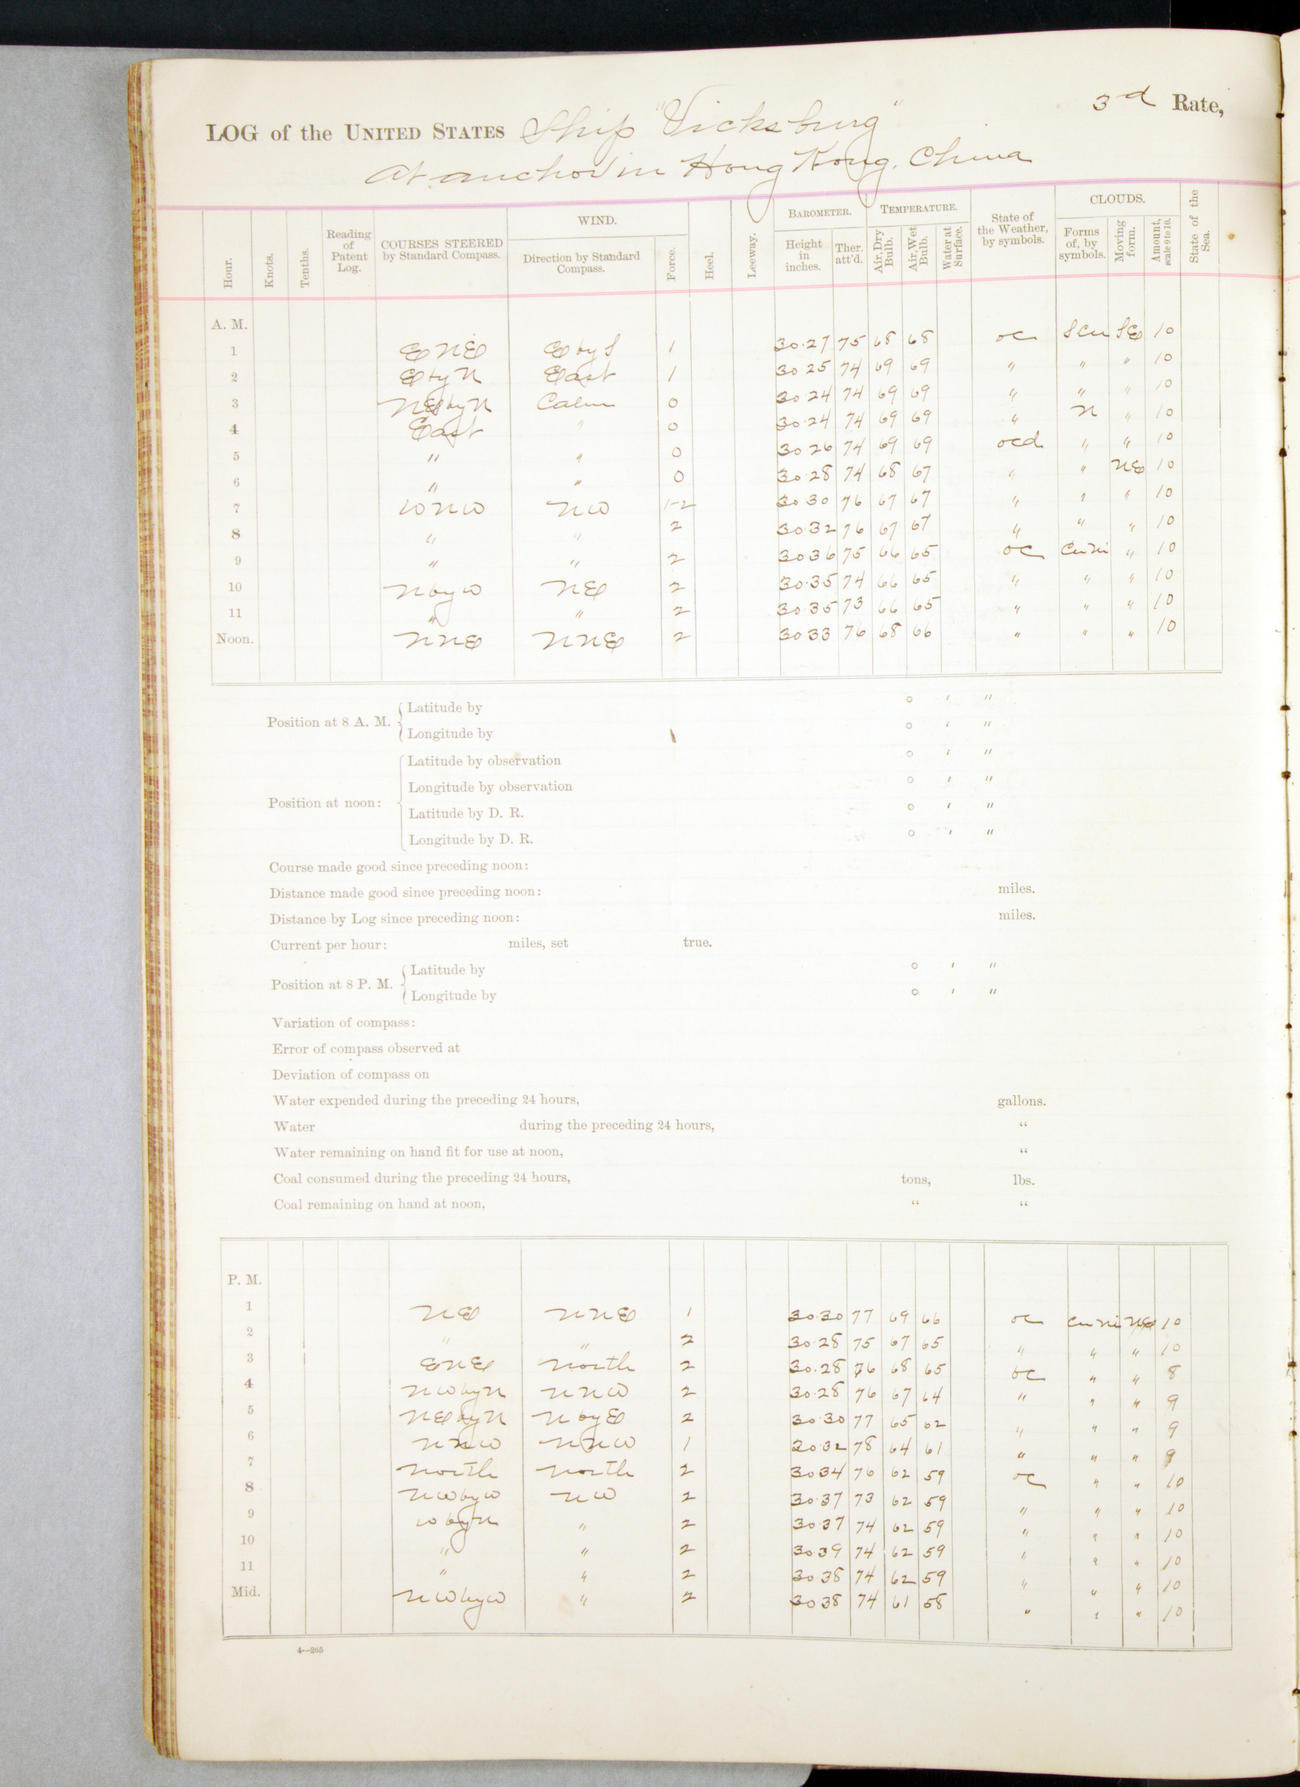 LOG of the UNITED STATES Ship "Vicksburg" 3rd Rate,
At anchor in Hong Kong, China
Hour. Knots. Tenths. Reading of Patent Log. COURSES STEERED by Standard Compass. WIND. Direction by Standard Compass. Force. Heel. Leeway. BAROMETER. Height in inches. Ther. att'd. TEMPERATURE. Air, Dry Bulb. Air, Wet Bulb. Water at Surface. State of the Weather, by symbols. CLOUDS. Forms of, by symbols. Moving form. Amount, scale 0 to 10. State of the Sea.
A. M.
1 ENE E by S 1 30.27 75 68 68 oc S Cu SE 10
2 E by N East 1 30 25 74 69 69 " " " 10
3 NE by N Calm 0 30 24 74 69 69 " " " 10
4 East " 0 30 24 74 69 69 " N " 10
5 " " 0 30 26 74 69 69 ocd " " 10
6 " " 0 30.28 74 68 67 " " NE 10
7 WNW NW 1-2 30 30 76 67 67 " " " 10
8 " " 2 30 32 76 67 67 " " " 10
9 " " 2 30 36 75 66 65 oc Cu Ni " 10
10 N by W NE 2 30.35 74 66 65 " " " 10
11 " " 2 30 35 73 66 65 " " " 10
Noon. NNE NNE 2 30 33 76 68 66 " " " 10
Position at 8 A. M. Latitude by ° ' "
Longitude by ° ' "
Position at noon: Latitude by observation ° ' "
Longitude by observation ° ' "
Latitude by D. R. ° ' "
Longitude by D. R. ° ' "
Course made good since preceding noon:
Distance made good since preceding noon: miles.
Distance by Log since preceding noon: miles.
Current per hour: miles, set true.
Position at 8 P. M. Latitude by ° ' "
Longitude by ° ' "
Variation of compass:
Error of compass observed at
Deviation of compass on
Water expended during the preceding 24 hours, gallons.
Water during the preceding 24 hours, "
Water remaining on hand fit for use at noon, "
Coal consumed during the preceding 24 hours, tons, lbs.
Coal remaining on hand at noon, " "
P. M.
1 NE NNE 1 30.30 77 69 66 oc Cu Ni NE 10
2 " " 2 30.28 75 67 65 " " " 10
3 ENE North 2 30.28 76 68 65 bc " " 8
4 NW by N NNW 2 30.28 76 67 64 " " " 9
5 NE by N N by E 2 30.30 77 65 62 " " " 9
6 NNW NNW 1 30.32 78 64 61 " " " 9
7 North North 2 30 34 76 62 59 oc " " 10
8 NW by W NW 2 30.37 73 62 59 " " " 10
9 W by N " 2 30.37 74 62 59 " " " 10
10 " " 2 30 39 74 62 59 " " " 10
11 " " 2 30 38 74 62 59 " " " 10
Mid. NW by W " 2 30 38 74 61 58 " " " 10
4—265